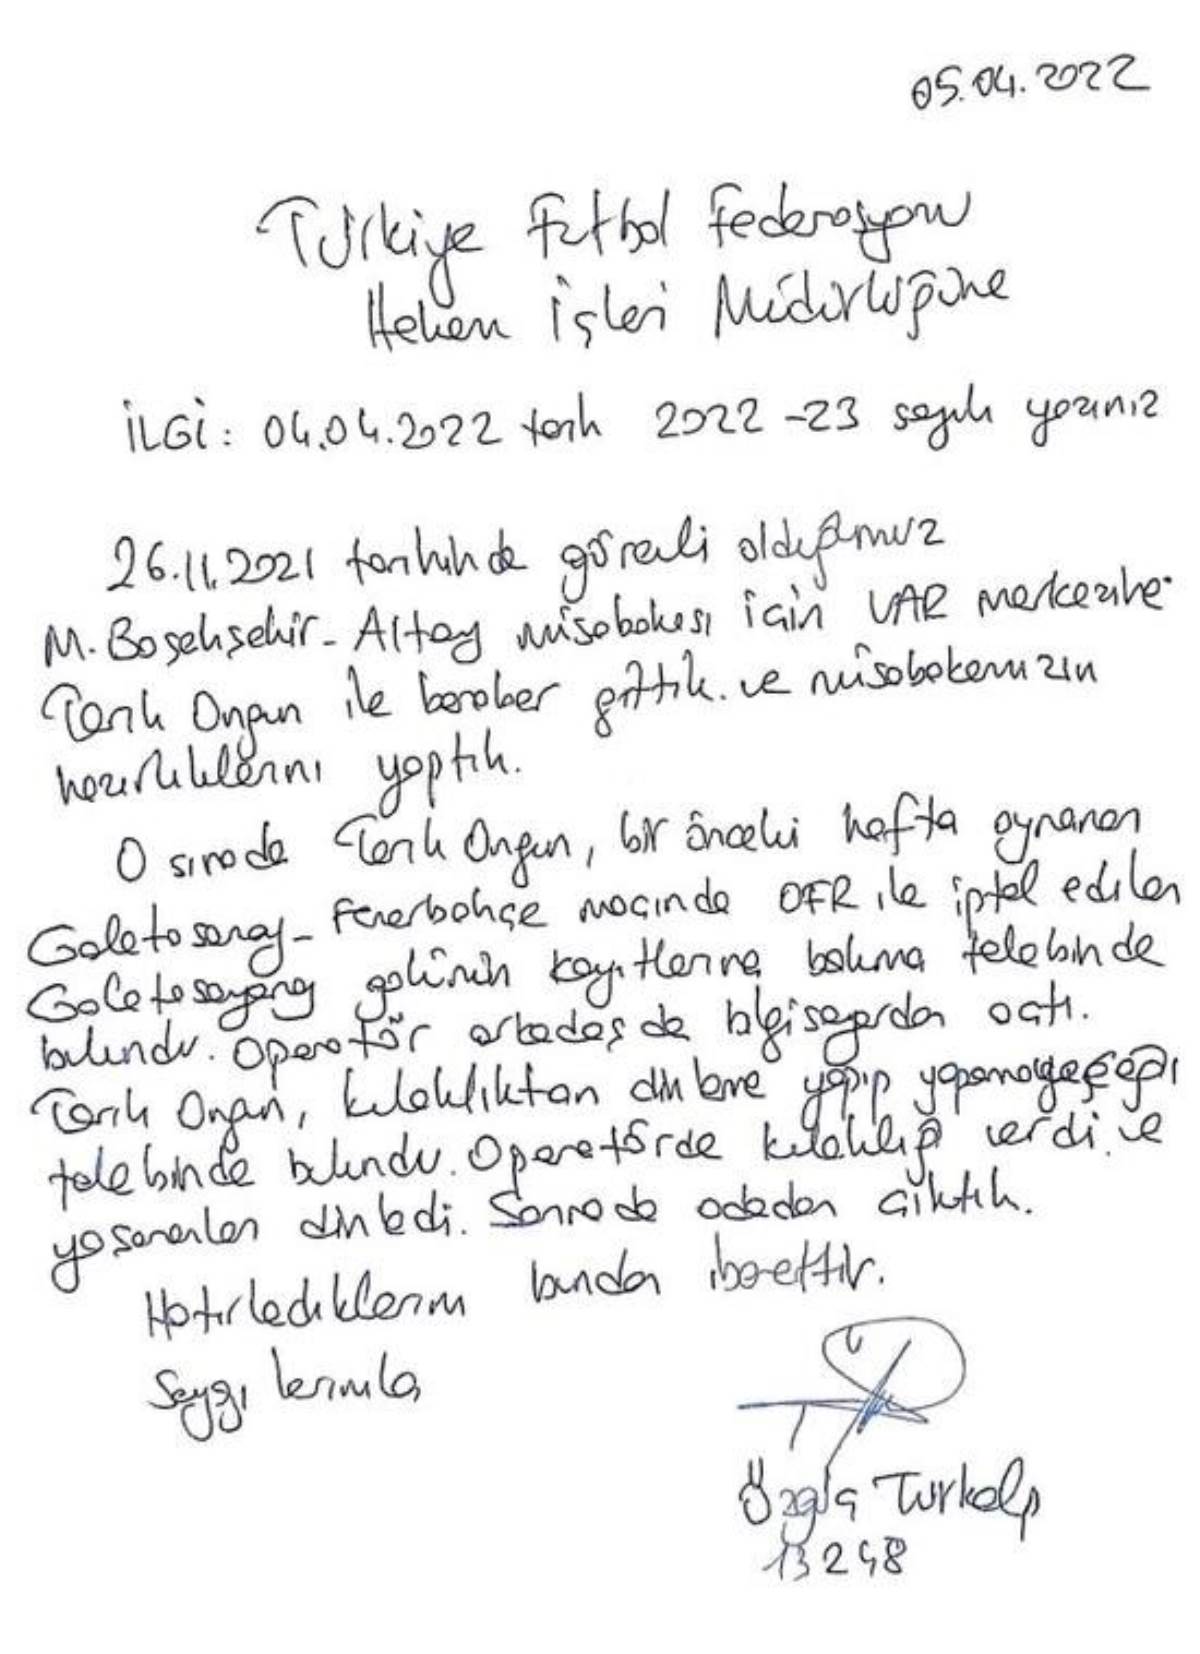 05.04.2022
Türkiye Futbol Federasyonu
Hakem İşleri Müdürlüğüne
İLGİ: 04.04.2022 tarih 2022-23 sayılı yazınız
26.11.2021 tarihinde görevli olduğumuz
M. Başakşehir - Altay müsabakası için VAR merkezine
Tarık Ongun ile beraber gittik. ve müsabakamızın
hazırlıklarını yaptık.
O sırada Tarık Ongun, bir önceki hafta oynanan
Galatasaray - Fenerbahçe maçında OFR ile iptal edilen
Galatasarayın golünün kayıtlarına bakma talebinde
bulundu. Operatör arkadaş da bilgisayardan açtı.
Tarık Ongun, kulaklıktan dinleme yapıp yapamayacağı
talebinde bulundu. Operatörde kulaklığı verdi ve
yaşananları dinledi. Sonra da odadan çıktık.
Hatırladıklarım bundan ibarettir.
Saygılarımla
Özgüç Türkalp
13248